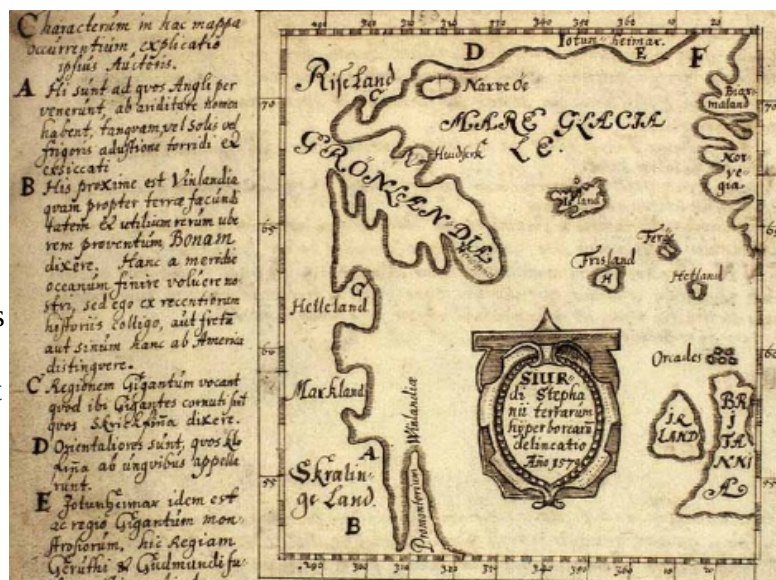 Characterum in hac mappa
occurrentium explicatio
ipsius Auctoris.
A Hi sunt ad quos Angli per
venerunt, ab ariditate nomen
habent, tanquam vel Solis vel
frigoris adustione torridi et
exsiccati
B His proxime est Vinlandia
quam propter terræ fæcundi
tatem et utilium rerum ube
rem proventum, Bonam
dixere. Hanc a meridie
oceanum finire voluere no
stri, sed ego ex recentiorum
historiis colligo, aut fretum
aut sinum hanc ab America
distinguere.
C Regionem Gigantum vocant
quod ibi Gigantes cornuti sint
quos Skrickfinna dixere.
D Orientaliores sunt, quos klo
fiña ab unguibus appella
runt.
E Jotunheimar idem est
ac regio Gigantum mon
strosiorum, hic Regiam
Geruthi & Gudmundi fu-
290 300 310 320 330 340 350 360 10 20
D Iotunheimar E F
Riseland
C
Narve Oe
70
70
Biar
maland
MARE GLACIA
LE
Huidserk
GRONLANDIÆ
Nor
vegia
Island
65
65
Ferö
Frisland
H
Hetland
Helleland
G
60
60
Orcades
SIUR-
di Stepha
nii terrarum
hyperborearū
delineatio
Año 1570
Markland
IR
LAND
BRI
TAN
NI
Æ
A
Promontorium Winlandiæ
Skralin-
ge Land.
B
55
55
290 300 310 320 330 340 350 360 10 20